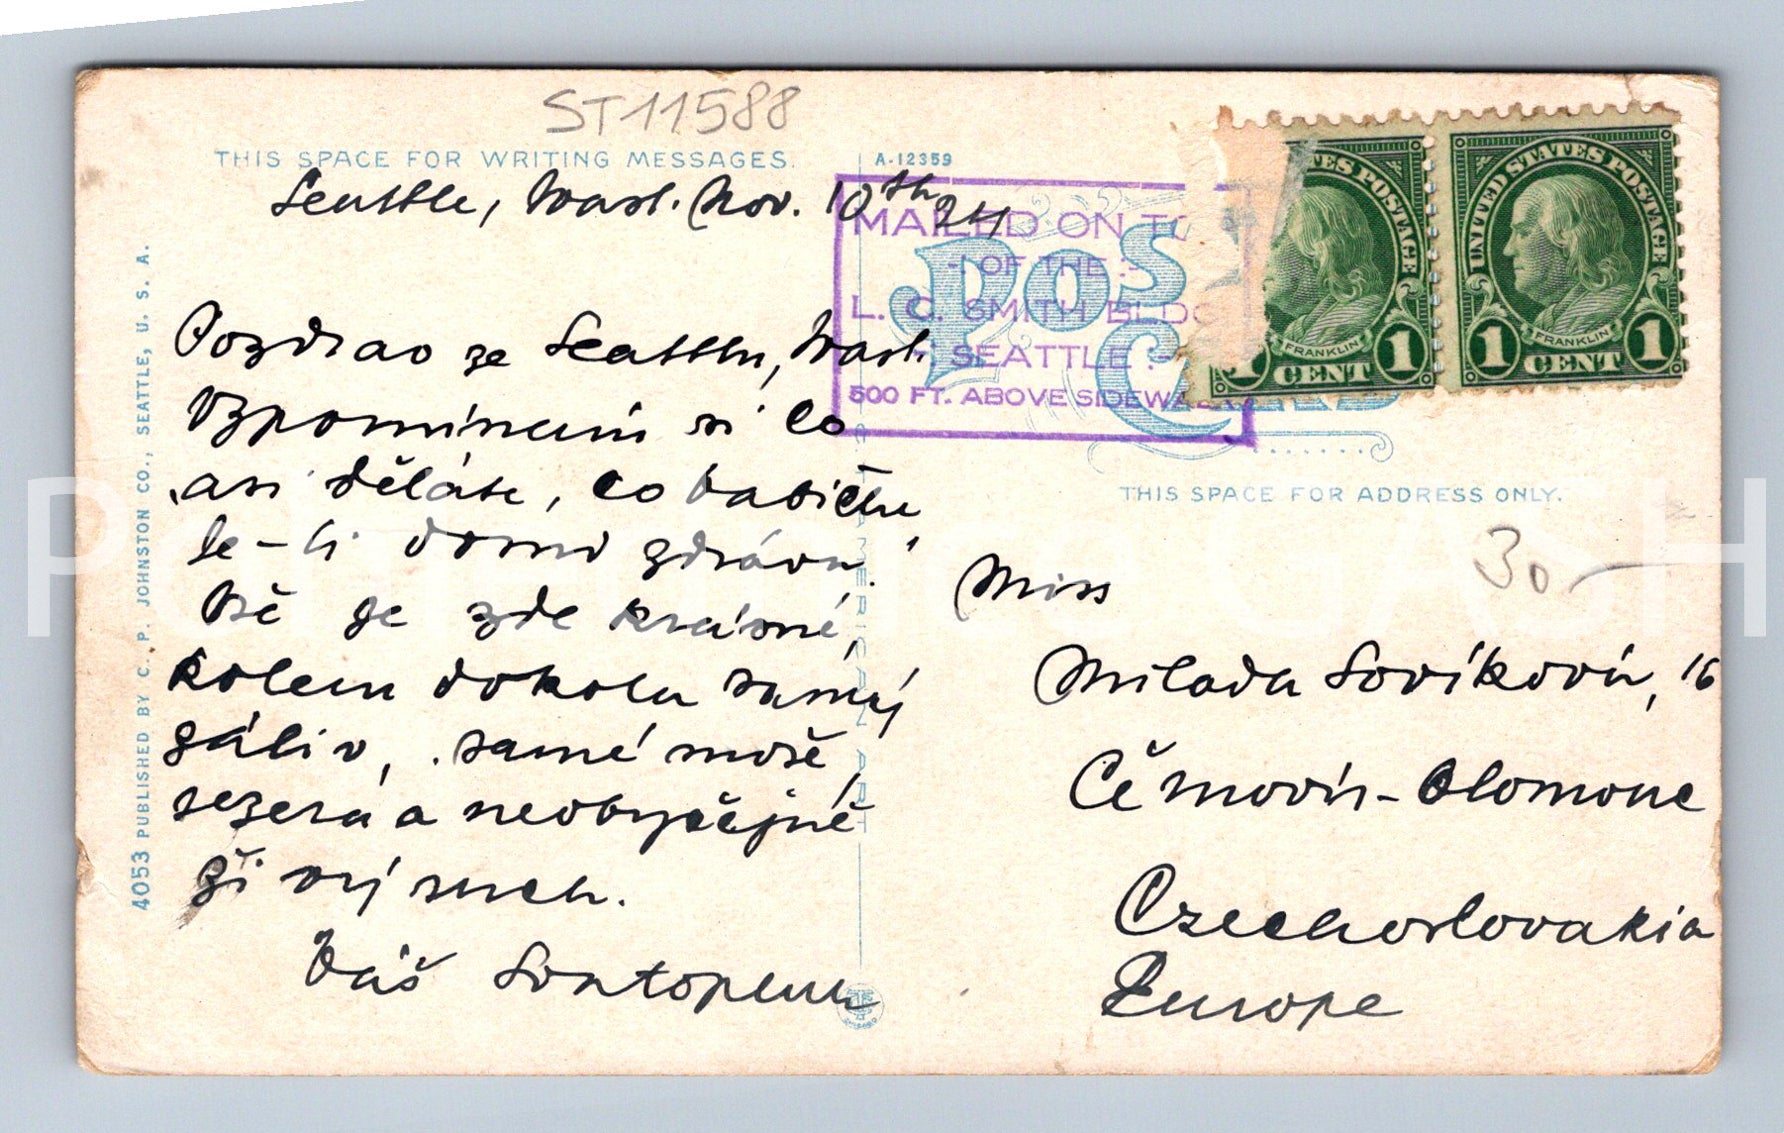 ST11588
THIS SPACE FOR WRITING MESSAGES.
A-12359
Seattle, Wash. Nov. 10th 24
MAILED ON TO
- OF THE -
L. C. SMITH BLDG
SEATTLE
500 FT. ABOVE SIDEWA
POS
CARD
UNITED STATES POSTAGE
FRANKLIN
1 CENT 1
TES POSTAGE
FRANKLIN
CENT 1
Pozdrav ze Seattlu, Wash.
Vzpomínám si co
asi děláte, co babička
Je-li doma zdráva.
Vše je zde krásné,
kolem dokola samý
záliv, samé moře,
jezera a neobyčejně
čí vzduch.
Váš
THIS SPACE FOR ADDRESS ONLY.
30-
Miss
Milada Sovíková, 16
Černovír-Olomouc
Czechoslovakia
Europe
4053 PUBLISHED BY C. P. JOHNSTON CO., SEATTLE, U. S. A.
AMERICAN ART